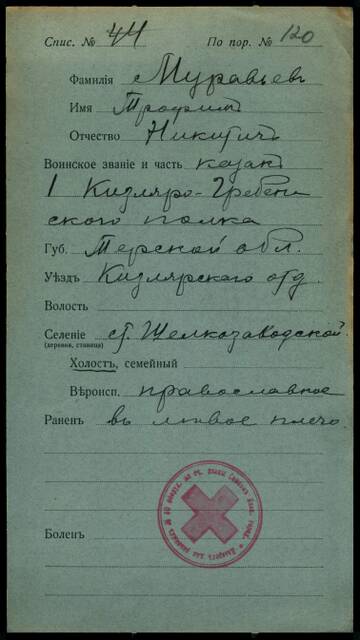 Спис. № 44 По пор. № 120
Фамилія Муравьев
Имя Трофимъ
Отчество Никитичъ
Воинское званіе и часть казакъ
1 Кизляро-Гребен
ского полка
Губ. Терской обл.
Уѣздъ Кизлярскаго отд.
Волость
Селеніе ст. Щелкозаводской.
(деревня, станица)
Холостъ, семейный
Вѣроисп. православное
Раненъ въ лѣвое плечо.
Боленъ